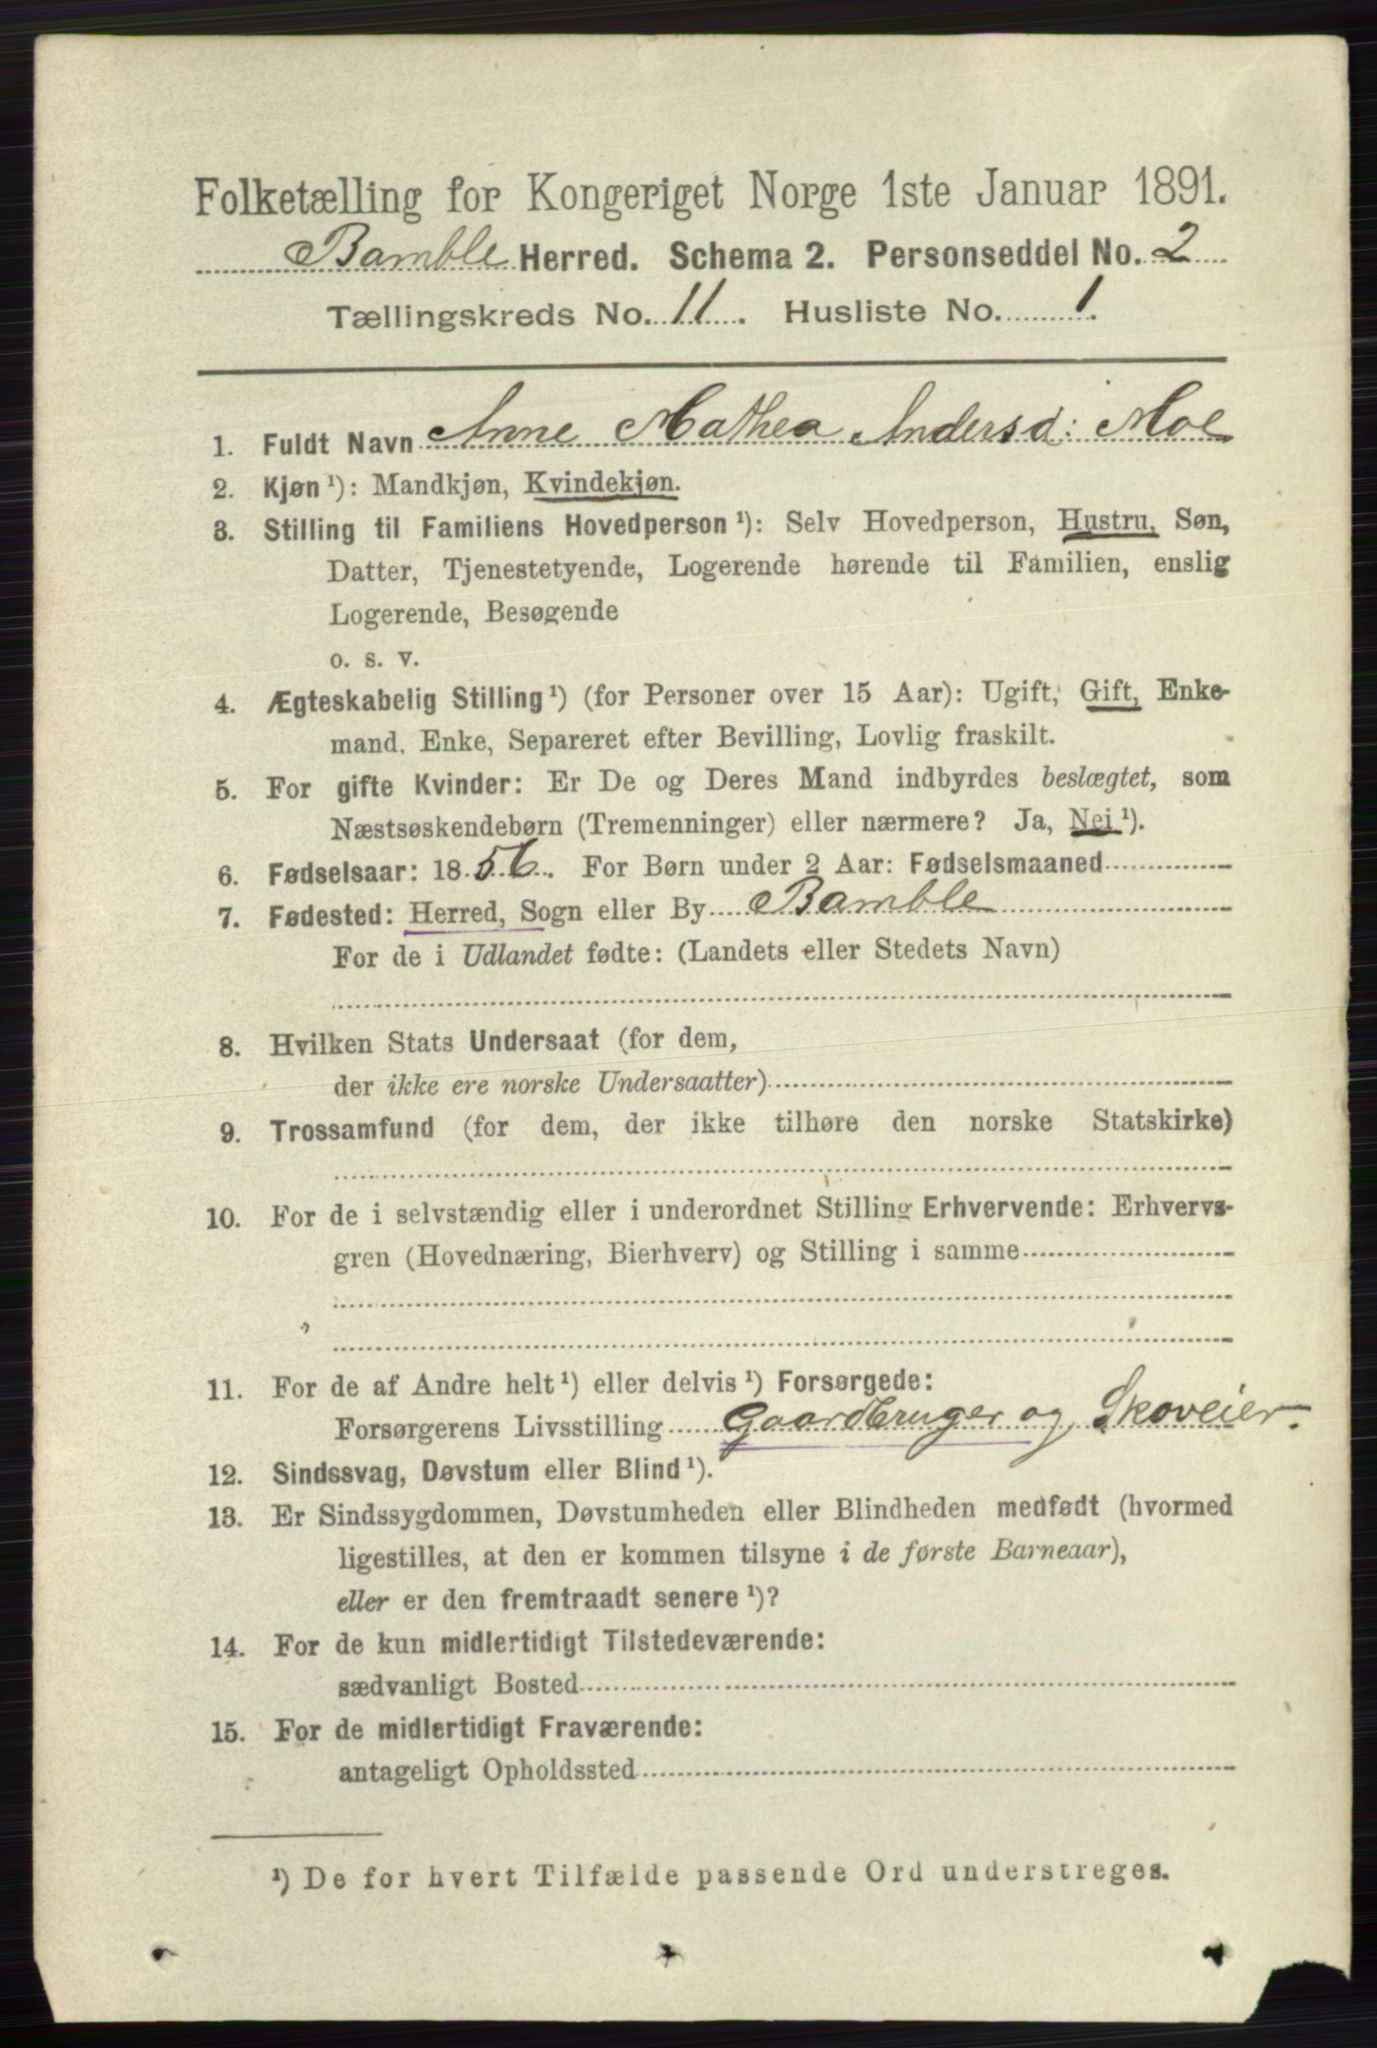 Folketælling for Kongeriget Norge 1ste Januar 1891.
Bamble Herred. Schema 2. Personseddel No. 2
Tællingskreds No. 11. Husliste No. 1.
1. Fuldt Navn Anne Mathea Andersd: Moe
2. Kjøn ¹): Mandkjøn, Kvindekjøn.
3. Stilling til Familiens Hovedperson ¹): Selv Hovedperson, Hustru, Søn,
Datter, Tjenestetyende, Logerende hørende til Familien, enslig
Logerende, Besøgende
o. s. v.
4. Ægteskabelig Stilling ¹) (for Personer over 15 Aar): Ugift, Gift, Enke-
mand, Enke, Separeret efter Bevilling, Lovlig fraskilt.
5. For gifte Kvinder: Er De og Deres Mand indbyrdes beslægtet, som
Næstsøskendebørn (Tremenninger) eller nærmere? Ja, Nei ¹).
6. Fødselsaar: 1856. For Børn under 2 Aar: Fødselsmaaned
7. Fødested: Herred, Sogn eller By Bamble
For de i Udlandet fødte: (Landets eller Stedets Navn)
8. Hvilken Stats Undersaat (for dem,
der ikke ere norske Undersaatter)
9. Trossamfund (for dem, der ikke tilhøre den norske Statskirke)
10. For de i selvstændig eller i underordnet Stilling Erhvervende: Erhvervs-
gren (Hovednæring, Bierhverv) og Stilling i samme
11. For de af Andre helt ¹) eller delvis ¹) Forsørgede:
Forsørgerens Livsstilling Gaardbruger og Skoveier.
12. Sindssvag, Døvstum eller Blind ¹).
13. Er Sindssygdommen, Døvstumheden eller Blindheden medfødt (hvormed
ligestilles, at den er kommen tilsyne i de første Barneaar),
eller er den fremtraadt senere ¹)?
14. For de kun midlertidigt Tilstedeværende:
sædvanligt Bosted
15. For de midlertidigt Fraværende:
antageligt Opholdssted
¹) De for hvert Tilfælde passende Ord understreges.